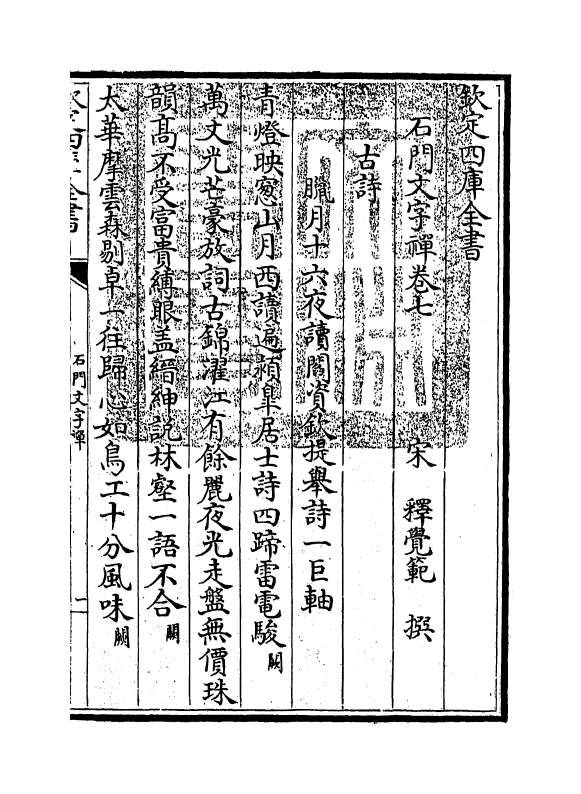 欽定四庫全書
石門文字禪卷七
宋 釋覺範 撰
古詩
臘月十六夜讀閻資欽提舉詩一巨軸
青燈映窻山月西讀遍潁臯居士詩四蹄雷電駿闕
萬丈光芒豪放詞古錦濯江有餘麗夜光走盤無價珠
韻髙不受富貴縛眼盖縉紳説林壑一語不合闕
太華摩雲森剔卓一往歸心如鳥工十分風味闕
欽定四庫全書
石門文字禪
一